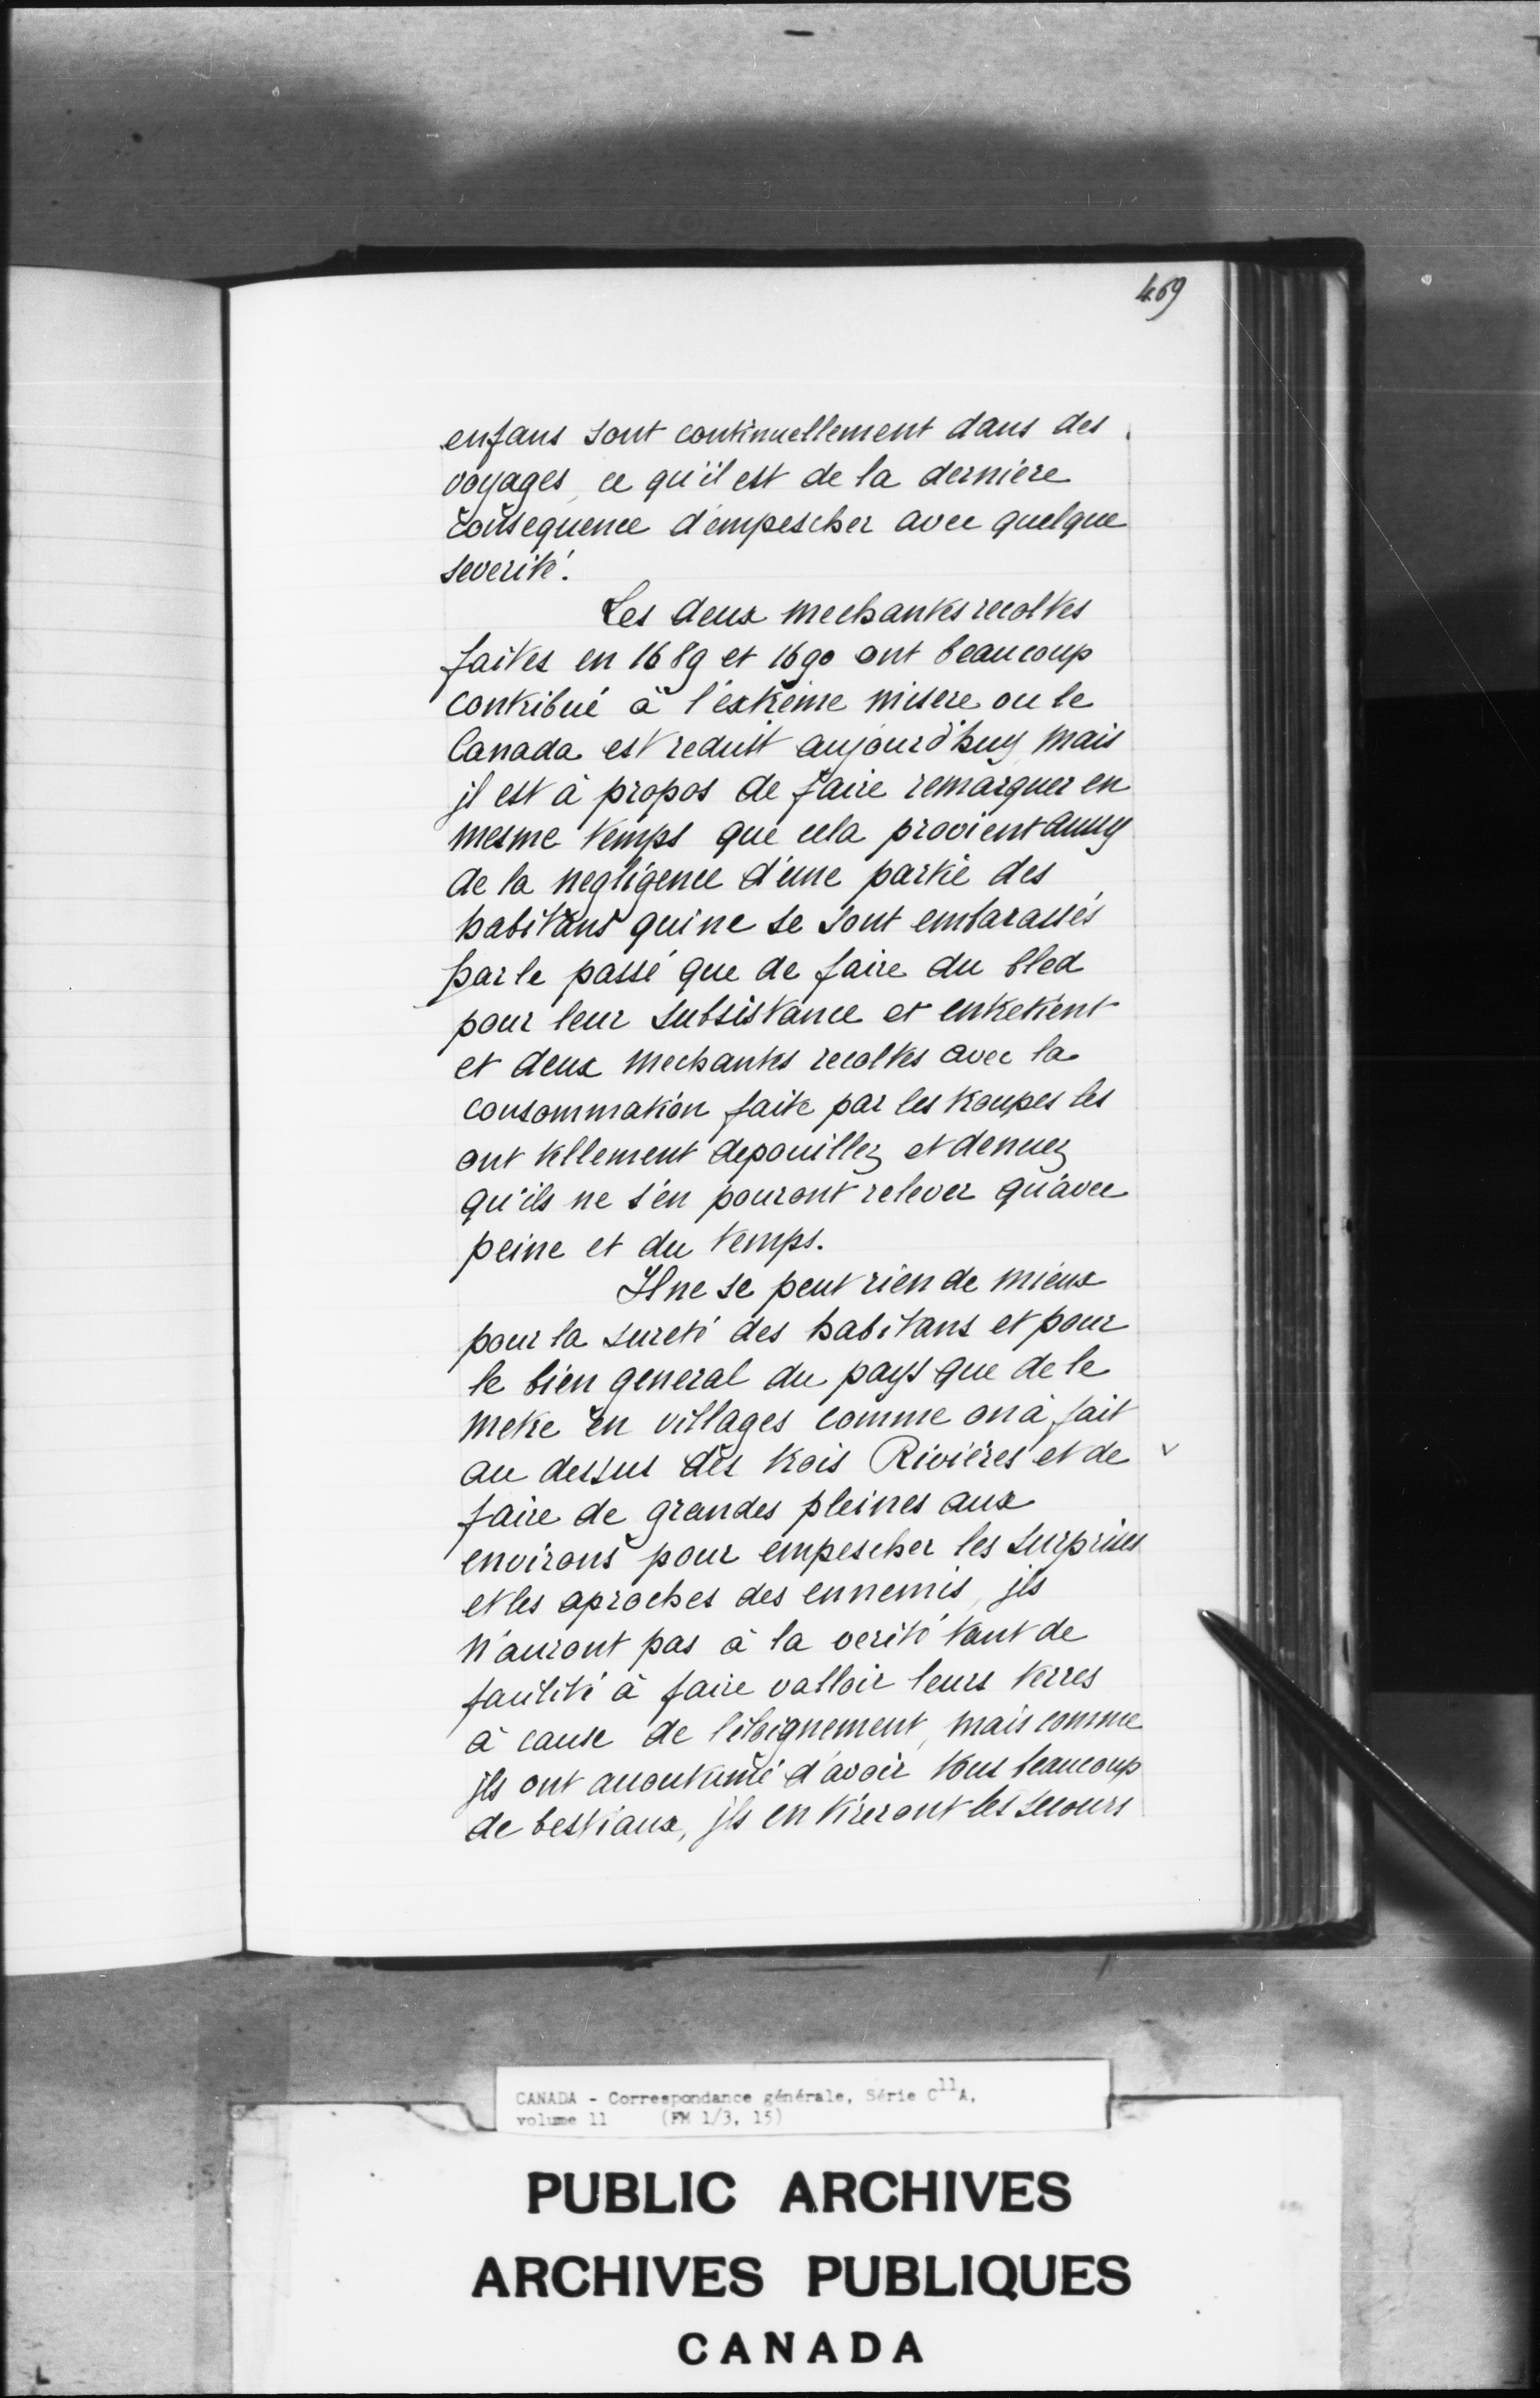 469
enfans sont continuellement dans des
voyages, ce qu'il est de la derniere
consequence d'empescher avec quelque
severité.
Les deux mechantes recoltes
faites en 1689 et 1690 ont beaucoup
contribué à l'extreme misere ou le
Canada est reduit aujourd'huy, mais
jl est à propos de faire remarquer en
mesme temps que cela provient aussy
de la negligence d'une partie des
habitans qui ne se sont embarassés
par le passé que de faire du bled
pour leur subsistance et entretient
et deux mechantes recoltes avec la
consommation faite par les troupes les
ont tellement depouillez et denuez
qu'ils ne s'en pouront relever qu'avec
peine et du temps.
Il ne se peut rien de mieux
pour la sureté des habitans et pour
le bien general du pays que de le
metre en villages comme on à fait
au dessus des trois Rivières et de v
faire de grandes pleines aux
environs pour empescher les surprises
et les aproches des ennemis, jls
n'auront pas à la verité tant de
facilité à faire valloir leurs terres
à cause de l'eloignement, mais comme
jls ont acoutumé d'avoir tous beaucoup
de bestiaux, jls en tireront les secours
CANADA - Correspondance générale, Série C11A,
volume 11 (FM 1/3, 15)
PUBLIC ARCHIVES
ARCHIVES PUBLIQUES
CANADA
L